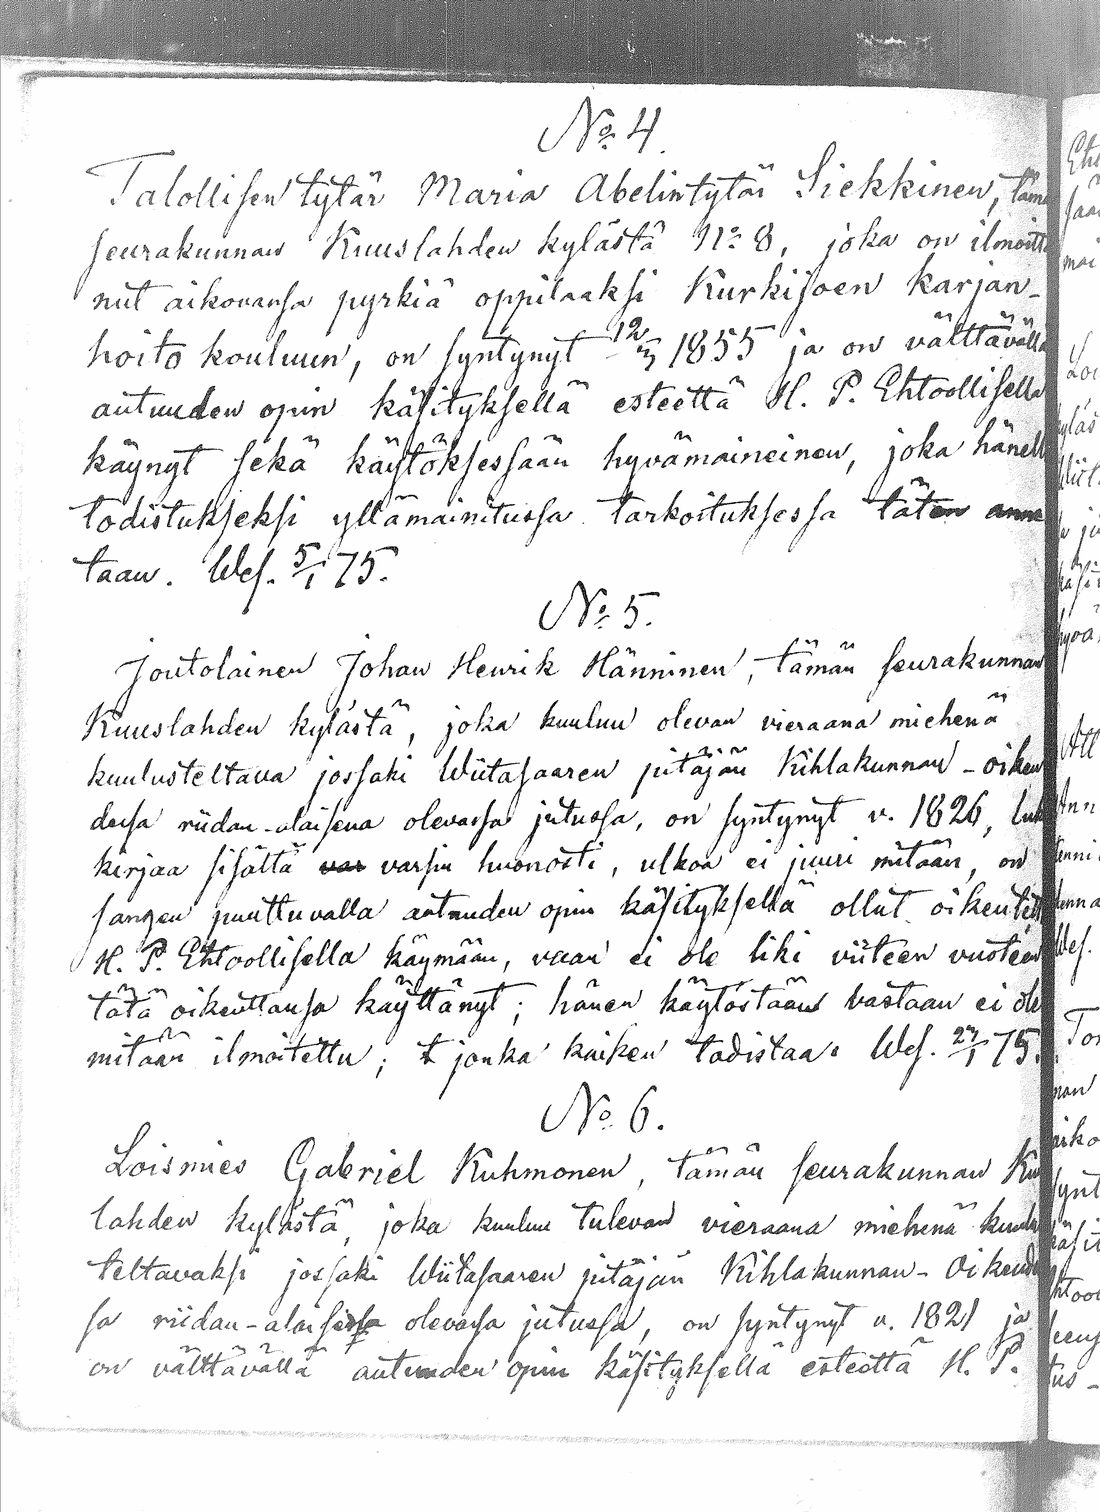 No 4.
Talollisen tytär Maria Abelintytär Siekkinen, täm
seurakunnan Kuuslahden kylästä No 8, joka on ilmoitta
nut aikovansa pyrkiä oppilaaksi Kurkijoen karjan-
hoito kouluun, on syntynyt 12/3 1855 ja on välttävällä
autuuden opin käsityksellä esteettä H. P. Ehtoollisella
käynyt sekä käytöksessään hyvämaineinen, joka hänelle
todistukseksi yllämainitussa tarkoituksessa täten anne
taan. Wes. 5/1 75.
No 5.
Joutolainen Johan Henrik Hänninen, tämän seurakunnan
Kuuslahden kylästä, joka kuuluu olevan vieraana miehenä
kuulusteltava jossaki Wiitasaaren pitäjän Kihlakunnan-oikeu
dessa riidan-alaisena olevassa jutussa, on syntynyt v. 1826, luk
kirjaa sisältä var varsin huonosti, ulkoa ei juuri mitään, on
sangen puuttuvalla autuuden opin käsityksellä ollut oikeutett
H. P. Ehtoollisella käymään, vaan ei ole liki viiteen vuoteen
tätä oikeuttansa käyttänyt; hänen käytöstään vastaan ei ole
mitään ilmoitettu; t jonka kaiken todistaa: Wes. 27/1 75.
No 6.
Loismies Gabriel Kuhmonen, tämän seurakunnan Ku
lahden kylästä, joka kuuluu tulevan vieraana miehenä kuulus
teltavaksi jossaki Wiitasaaren pitäjän Kihlakunnan-Oikeude
sa riidan-alaisessa olevassa jutussa, on syntynyt v. 1821 ja
on välttävällä autuuden opin käsityksellä esteettä H. P.